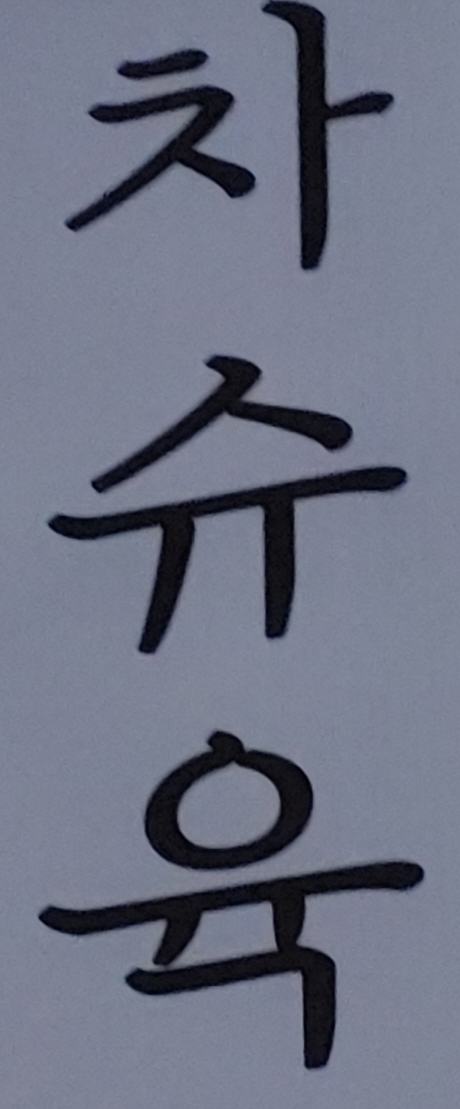 차슈육